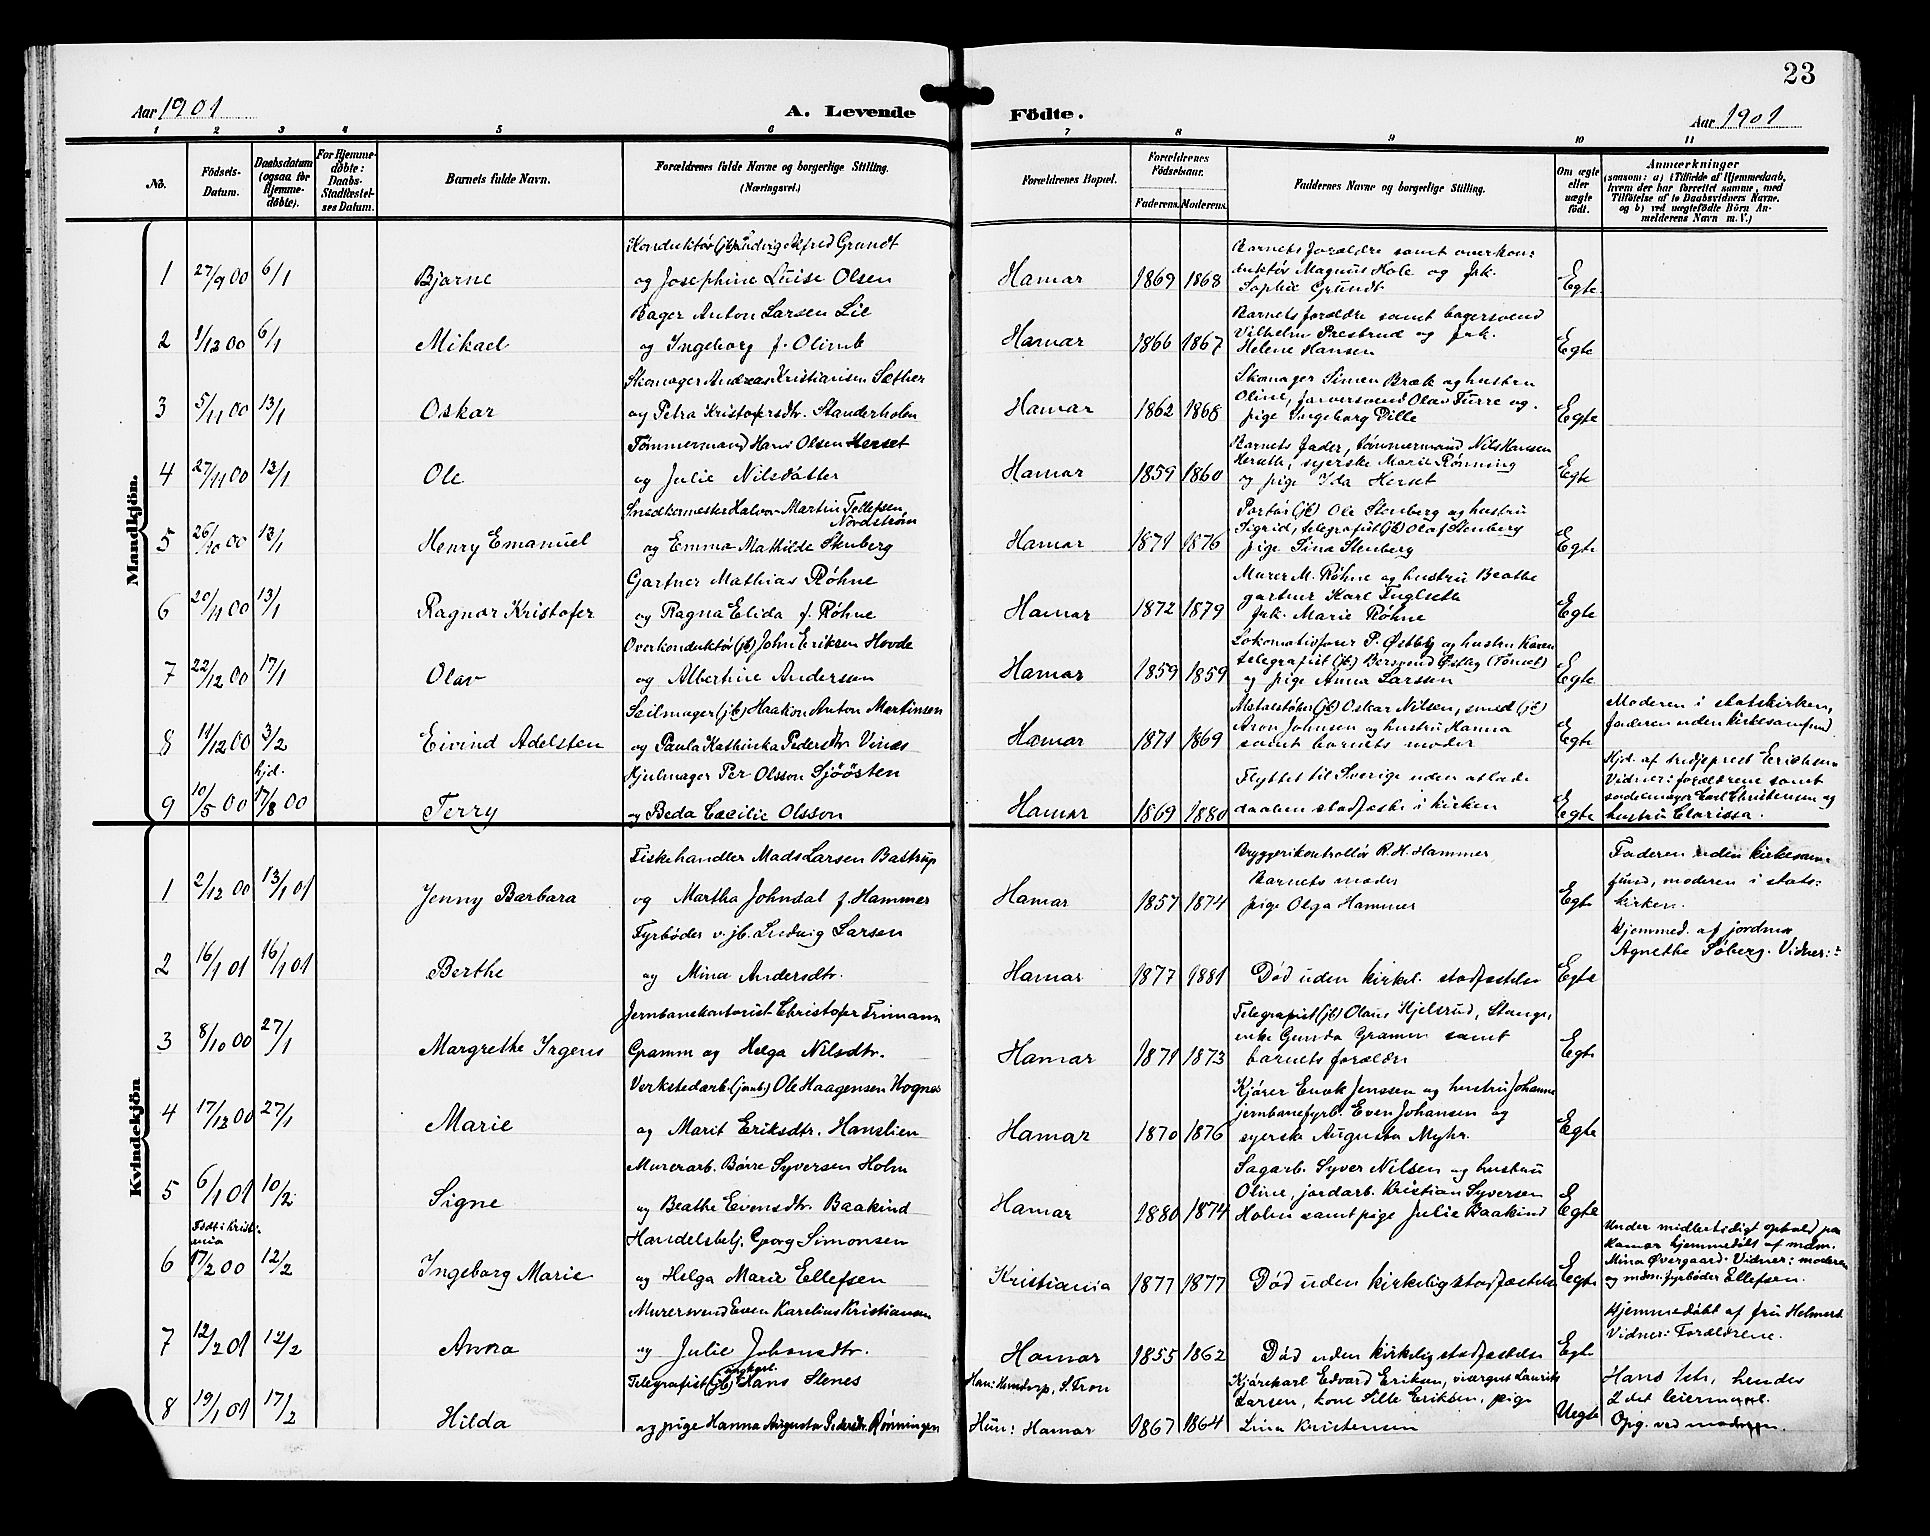 23
Aar 1901 A. Levende Födte. Aar 1901
1 2 3 4 5 6 7 8 9 10 11
No.
Födsels-Datum.
Daabsdatum (ogsaa for Hjemmedöbte).
For Hjemmedöbte: Daabs-Stadfæstelses Datum.
Barnets fulde Navn.
Forældrenes fulde Navne og borgerlige Stilling.
(Næringsvei.)
Forældrenes Bopæl.
Forældrenes Födselsaar.
Faderens. Moderens.
Faddernes Navne og borgerlige Stilling.
Om ægte eller uægte födt.
Anmærkninger
(saasom: a) i Tilfælde af Hjemmedaab,
hvem der har forrettet samme, med
Tilföielse af to Daabsvidners Navne.
og b) ved uægtefödte Börn An-
melderens Navn m. V.)
Mandkjön.
Konduktør (jb) Ludvig Alfred Grundt
1 27/9 00 6/1 Bjarne og Josephine Luise Olsen Hamar 1869 1868 Barnets forældre samt overkon:
duktør Magnus Hole og frk.
Sophie Grundt Egte
Bager Anton Larsen Lie
2 1/12 00 6/1 Mikael og Ingeborg f. Olimb Hamar 1866 1867 Barnets forældre samt bagersvend
Vilhelm Prestrud og frk.
Helene Hansen Egte
Skomager Andreas Kristiansen Sæther
3 5/11 00 13/1 Oskar og Petra Kristofersdtr. Standerholen Hamar 1862 1868 Skomager Simen Bræk og hustru
Oline, farversvend Olav Turre og
pige Ingeborg Dille Egte
Tømmermand Hans Olsen Herset
4 27/11 00 13/1 Ole og Julie Nilsdatter Hamar 1859 1860 Barnets fader, tømmermand Nils Hansen
syerske Marie Rønning
og pige Ida Herset Egte
Snedkermester Halvor Martin Tellefsen
Nordstrøm
5 26/10 00 13/1 Henry Emanuel og Emma Mathilde Stenberg Hamar 1871 1876 Portør (jb) Ole Stenberg og hustru
Sigrid, telegrafist (jb) Olaf Stenberg
pige Sina Stenberg Egte
Gartner Mathias Røhne
6 20/11 00 13/1 Ragnar Kristofer og Ragna Elida f. Røhne Hamar 1872 1879 Murer M. Røhne og hustru Beathe
gartner Karl Fuglseth
frk. Marie Røhne Egte
Overkonduktør (jb) John Eriksen Hovde
7 22/12 00 17/1 Olav og Albertine Andersen Hamar 1859 1859 Lokomotivfører P. Østby og hustru Karen
telegrafist (jb) Bersvend Østby (Tønset)
og pige Anna Larsen Egte
Seilmager (jb) Haakon Anton Martinsen
8 11/12 00 3/2 Eivind Adelsten og Paula Kathinka Pedersdtr. Vinæs Hamar 1871 1869 Metalstøber (jb) Oskar Nilsen, smed (jb)
Aron Johnsen og hustru Hanna
samt barnets moder Egte Moderen i statskirken,
faderen uden kirkesamfund
Hjulmager Per Olsson Sjöösten
9 10/5 00 hjd. 17/8 00 Terry og Beda Cæcilie Olsson Hamar 1869 1880 Flyttet til Sverige uden at lade
daaben stadfæste i kirken Egte Hjd. af tredjeprest Erichsen
Vidner: forældrene samt
sadelmager Carl Christensen og
hustru Clarissa.
Kvindekjön
Fiskehandler Mads Larsen Bastrup
1 2/12 00 13/1 01 Jenny Barbara og Martha Johndal f. Hammer Hamar 1857 1874 Bryggerikontrollør R. H. Hammer
Barnets moder
pige Olga Hammer Egte Faderen uden kirkesam=
fund, moderen i stats:
kirken.
Fyrbøder v. jb. Ludvig Larsen
2 16/1 01 16/1 01 Berthe og Mina Andersdtr. Hamar 1877 1881 Død uden kirkel. stadfæstelse Egte Hjemmed. af jordmor
Agnethe Soberg. Vidner: ?
Jernbanekontorist Christofer Frimann
3 8/10 00 27/1 Margrethe Irgens Gramm og Helga Nilsdtr. Hamar 1871 1873 Telegrafist (jb) Olaus Hjelsrud, Stange,
enke Gunda Gramm samt
barnets forældre Egte
Verkstedarb. (jernb.) Ole Haagensen Hognes
4 17/12 00 27/1 Marie og Marit Eriksdtr. Hanslien Hamar 1870 1876 Kjører Enok Jenssen og hustru Johanne
jernbanefyrb. Even Johansen og
syerske Augusta Myhr. Egte
Murerarb. Børre Syversen Holm
5 6/1 01 10/2 Signe og Beathe Evensdtr. Baakind Hamar 1880 1874 Sagarb. Syver Nilsen og hustru
Oline, jordarb. Kristian Syversen
Holm samt pige Julie Baakind Egte
Født i Kristi-
ania
Handelsbetj. Georg Simonsen
6 17/2 00 12/2 Ingeborg Marie og Helga Marie Ellefsen Kristiania 1877 1877 Død uden kirkelig stadfæstelse Egte Under midlertidigt ophold paa
Hamar hjemmedøbt af mdm.
Mina Øvergaard. Vidner: moderen
og mdm. fyrbøder Ellefsen.
Murersvend Even Karelius Kristiansen
7 12/2 01 12/2 Anna og Julie Johansdtr. Hamar 1855 1862 Død uden kirkelig stadfæstelse Egte Hjemmedøbt af fru Helmers.
Vidner: Forældrene.
Telegrafist (jb) ungkarl. Hans Stenes
8 19/1 01 17/2 Hilda og pige Hanna Augusta Pedersdtr. Rønningen Han: Hundorp, S. Fron
Hun: Hamar 1867 1864 Kjørekarl Edvard Eriksen, Laurits
Larsen, kone Sille Eriksen, pige
Lina Kristensen Uegte Hans 1ste, hendes
2det leiermaal.
Opg. ved moderen.